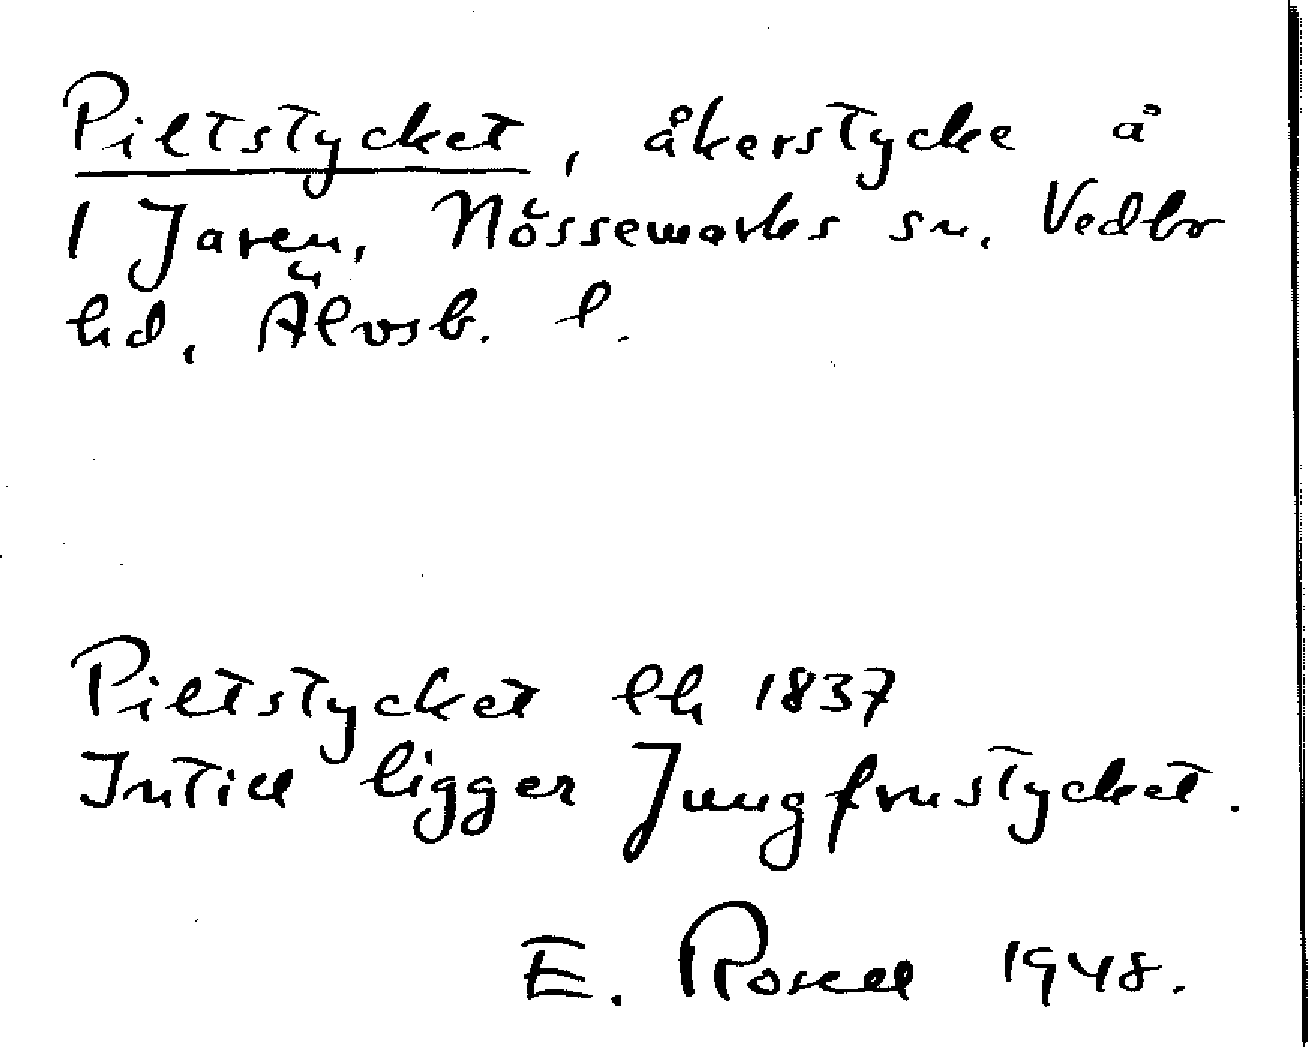 Piltstycket, åkerstycke å
1 Jaren, Nössemarks sn. Vedbo
hd, Älvsb. l.
Piltstycket lh 1837
Intill ligger Jungfrustycket.
E. Rosell 1948.